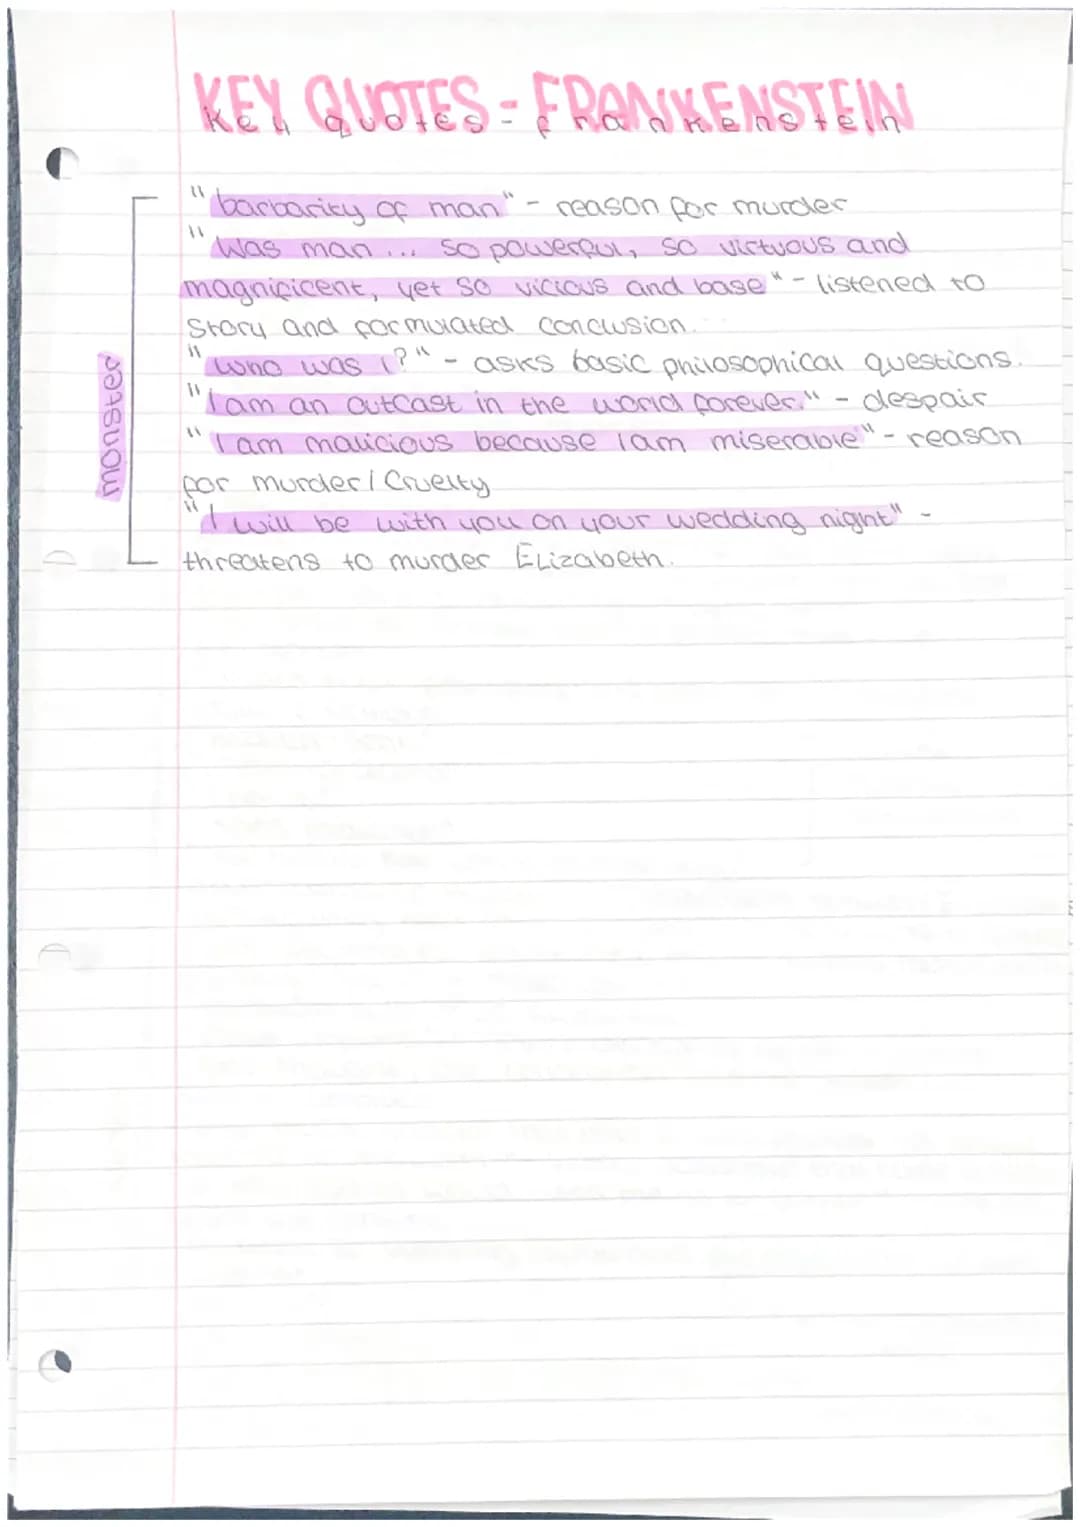 KEY QUOTES - FRANKENSTEIN
Key quotes - frankenstein
monster
"barbarity of man" - reason for murder
"Was man ... so powerful, so virtuous and
magnificent, yet so vicious and base" - listened to
story and formulated conclusion.
"who was i?" - asks basic philosophical questions.
"I am an outcast in the world forever." - despair
"I am malicious because I am miserable" - reason
for murder/Cruelty
"I will be with you on your wedding night" -
threatens to murder Elizabeth.